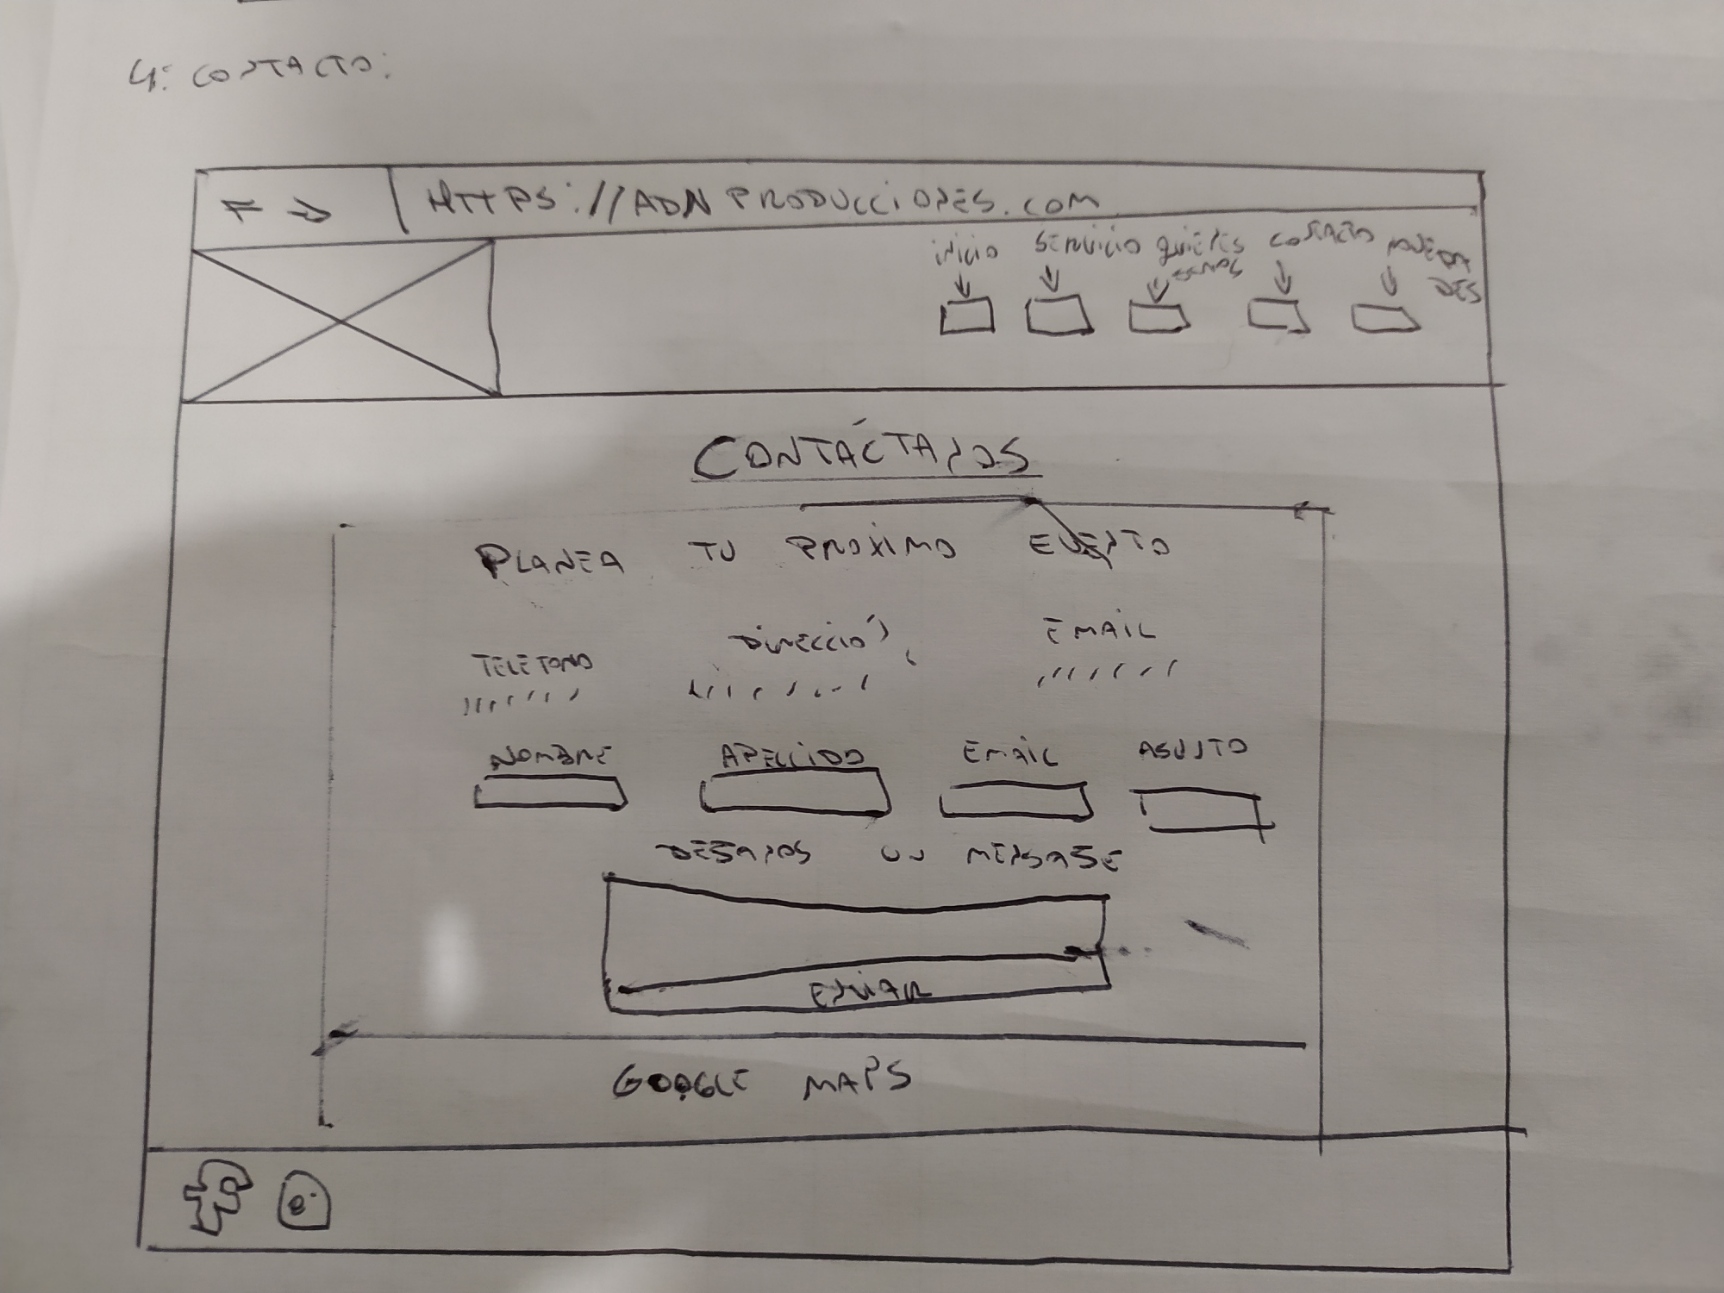 4: CONTACTO:
HTTPS://ADNPRODUCCIONES.COM
inicio SERVICIO quienes somos CONTACTO NOVEDADES
CONTÁCTANOS
PLANEA TU PROXIMO EVENTO
TELEFONO DIRECCIÓN EMAIL
NOMBRE APELLIDO EMAIL ASUNTO
DEJANOS UN MENSAJE
ENVIAR
GOOGLE MAPS